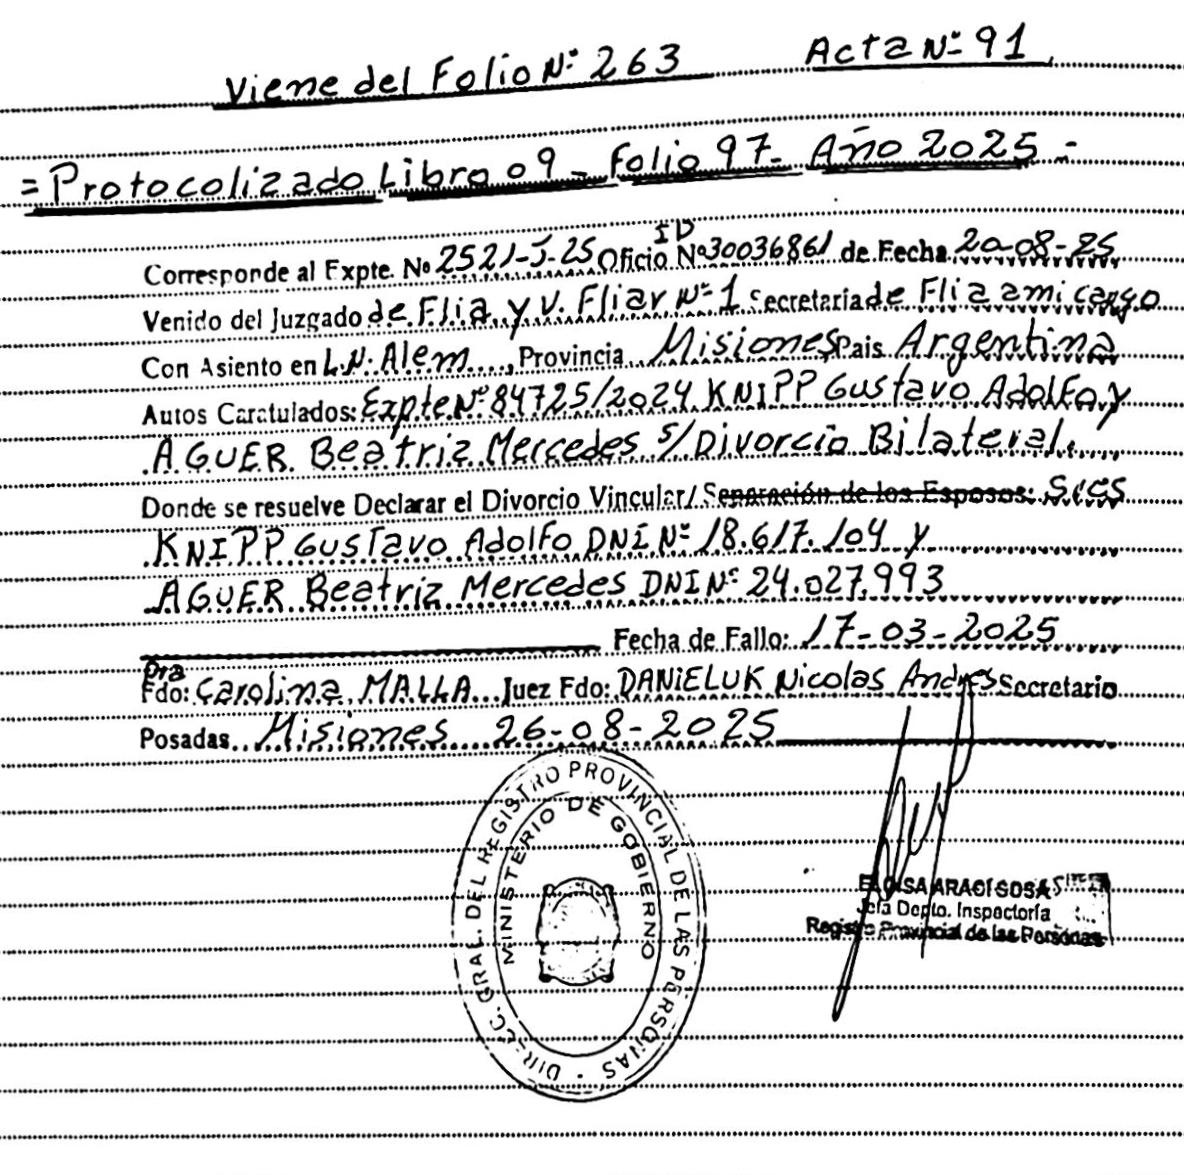 Viene del Folio Nº 263 Acta Nº 91
= Protocolizado Libro 09 - Folio 97- Año 2025 -
ID
Corresponde al Expte. Nº 2521-J-25 Oficio Nº 30036861 de Fecha 20-08-25
Venido del Juzgado de Flia. y V. Fliar Nº 1 Secretaria de Flia a mi cargo
Con Asiento en L.N. Alem, Provincia Misiones, Pais Argentina
Autos Caratulados: Expte Nº 84725/2024 KNIPP Gustavo Adolfo y
AGUER Beatriz Mercedes S/Divorcio Bilateral.
Donde se resuelve Declarar el Divorcio Vincular/ Separación de los Esposos: Sres
KNIPP Gustavo Adolfo DNI Nº 18.617.104 y
AGUER Beatriz Mercedes DNI Nº 24.027.993
Fecha de Fallo: 17-03-2025
Dra
Fdo: Carolina MALLA Juez Fdo: DANIELUK Nicolas Andres Secretario
Posadas Misiones 26-08-2025
DIRECC. GRAL. DEL REGISTRO PROVINCIAL DE LAS PERSONAS
MINISTERIO DE GOBIERNO
ELOISA ARACI SOSA
Jefa Depto. Inspectoría
Registro Provincial de las Personas